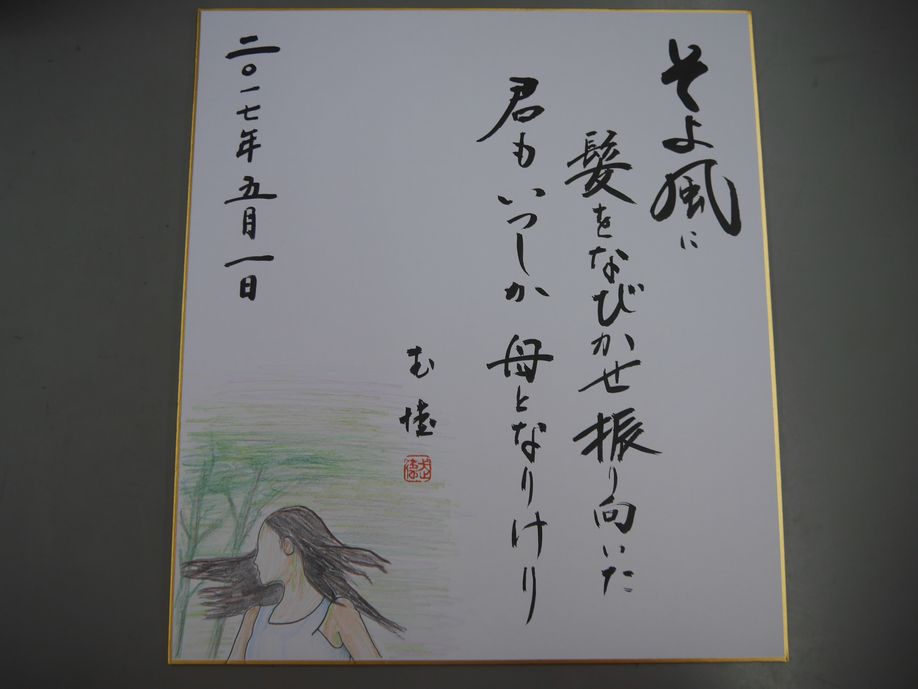 そよ風に
髪をなびかせ振り向いた
君もいつしか 母となりけり
二〇一七年 五月一日